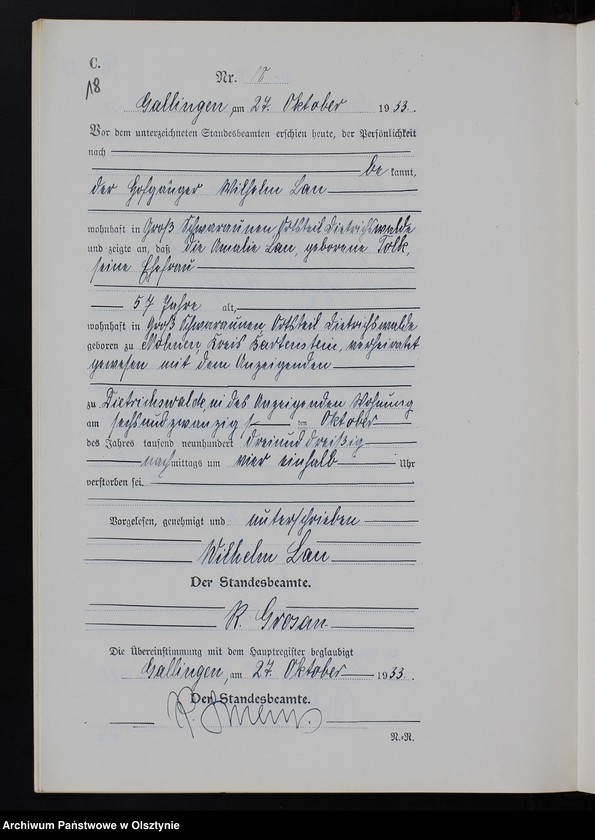 C.
18
Nr. 18
Gallingen, am 27. Oktober 1933.
Vor dem unterzeichneten Standesbeamten erschien heute, der Persönlichkeit
nach
be kannt,
der Hofgänger Wilhelm Lau
wohnhaft in Groß Schwaraunen, Ortsteil Dietrichswalde
und zeigte an, daß die Amalie Lau, geborene Tolk,
seine Ehefrau
57 Jahre alt,
wohnhaft in Groß Schwaraunen, Ortsteil Dietrichswalde
geboren zu Kreis Bartenstein, verheiratet
gewesen mit dem Anzeigenden
zu Dietrichswalde, in des Anzeigenden Wohnung
am sechsundzwanzigsten Oktober
des Jahres tausend neunhundert dreiunddreißig
nachmittags um vier einhalb Uhr
verstorben sei.
Vorgelesen, genehmigt und unterschrieben
Wilhelm Lau
Der Standesbeamte.
R.
Die Übereinstimmung mit dem Hauptregister beglaubigt
Gallingen, am 27. Oktober 1933.
Der Standesbeamte.
R.=R.
Archiwum Państwowe w Olsztynie